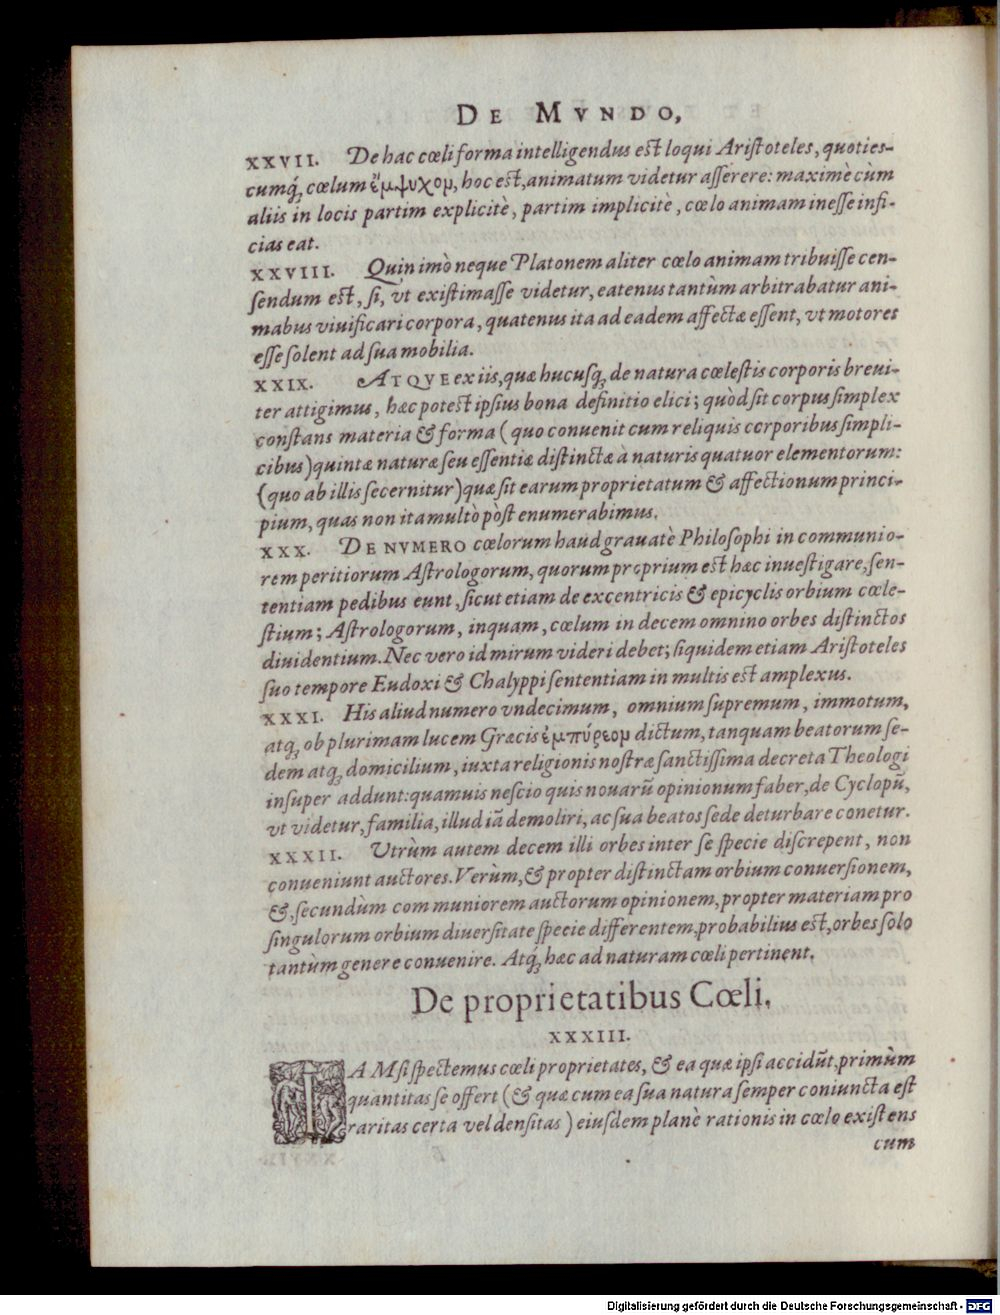 DE MVNDO,
XXVII. De hac cœli forma intelligendus est loqui Aristoteles, quoties-
cumq́ꝫ cœlum ἔμψυχομ, hoc est, animatum videtur asserere: maximè cùm
aliis in locis partim explicitè, partim implicitè, cœlo animam inesse infi-
cias eat.
XXVIII. Quinimò neque Platonem aliter cœlo animam tribuisse cen-
sendum est, si, vt existimasse videtur, eatenus tantùm arbitrabatur ani-
mabus viuificari corpora, quatenus ita ad eadem affectæ essent, vt motores
esse solent ad sua mobilia.
XXIX. ATQVE ex iis, quæ hucusq́ꝫ de natura cœlestis corporis breui-
ter attigimus, hæc potest ipsius bona definitio elici; quòd sit corpus simplex
constans materia & forma (quo conuenit cum reliquis corporibus simpli-
cibus) quintæ naturæ seu essentiæ distinctæ à naturis quatuor elementorum:
(quo ab illis secernitur) quæ sit earum proprietatum & affectionum princi-
pium, quas non ita multò pòst enumerabimus.
XXX. DE NVMERO cœlorum haud grauatè Philosophi in communio-
rem peritiorum Astrologorum, quorum proprium est hæc inuestigare, sen-
tentiam pedibus eunt, sicut etiam de excentricis & epicyclis orbium cœle-
stium; Astrologorum, inquam, cœlum in decem omnino orbes distinctos
diuidentium. Nec vero id mirum videri debet; siquidem etiam Aristoteles
suo tempore Eudoxi & Chalyppi sententiam in multis est amplexus.
XXXI. His aliud numero vndecimum, omnium supremum, immotum,
atqꝫ ob plurimam lucem Græcis ἐμπύρεομ dictum, tanquam beatorum se-
dem atqꝫ domicilium, iuxta religionis nostræ sanctissima decreta Theologi
insuper addunt: quamuis nescio quis nouarū opinionum faber, de Cyclopū,
vt videtur, familia, illud iã demoliri, ac sua beatos sede deturbare conetur.
XXXII. Utrùm autem decem illi orbes inter se specie discrepent, non
conueniunt auctores. Verùm, & propter distinctam orbium conuersionem,
&, secundùm communiorem auctorum opinionem, propter materiam pro
singulorum orbium diuersitate specie differentem, probabilius est, orbes solo
tantùm genere conuenire. Atq́ꝫ hæc ad naturam cœli pertinent.
De proprietatibus Cœli.
XXXIII.
IAM si spectemus cœli proprietates, & ea quæ ipsi accidūt, primùm
quantitas se offert (& quæ cum ea sua natura semper coniuncta est
raritas certa vel densitas) eiusdem planè rationis in cœlo existens
cum
Digitalisierung gefördert durch die Deutsche Forschungsgemeinschaft - DFG